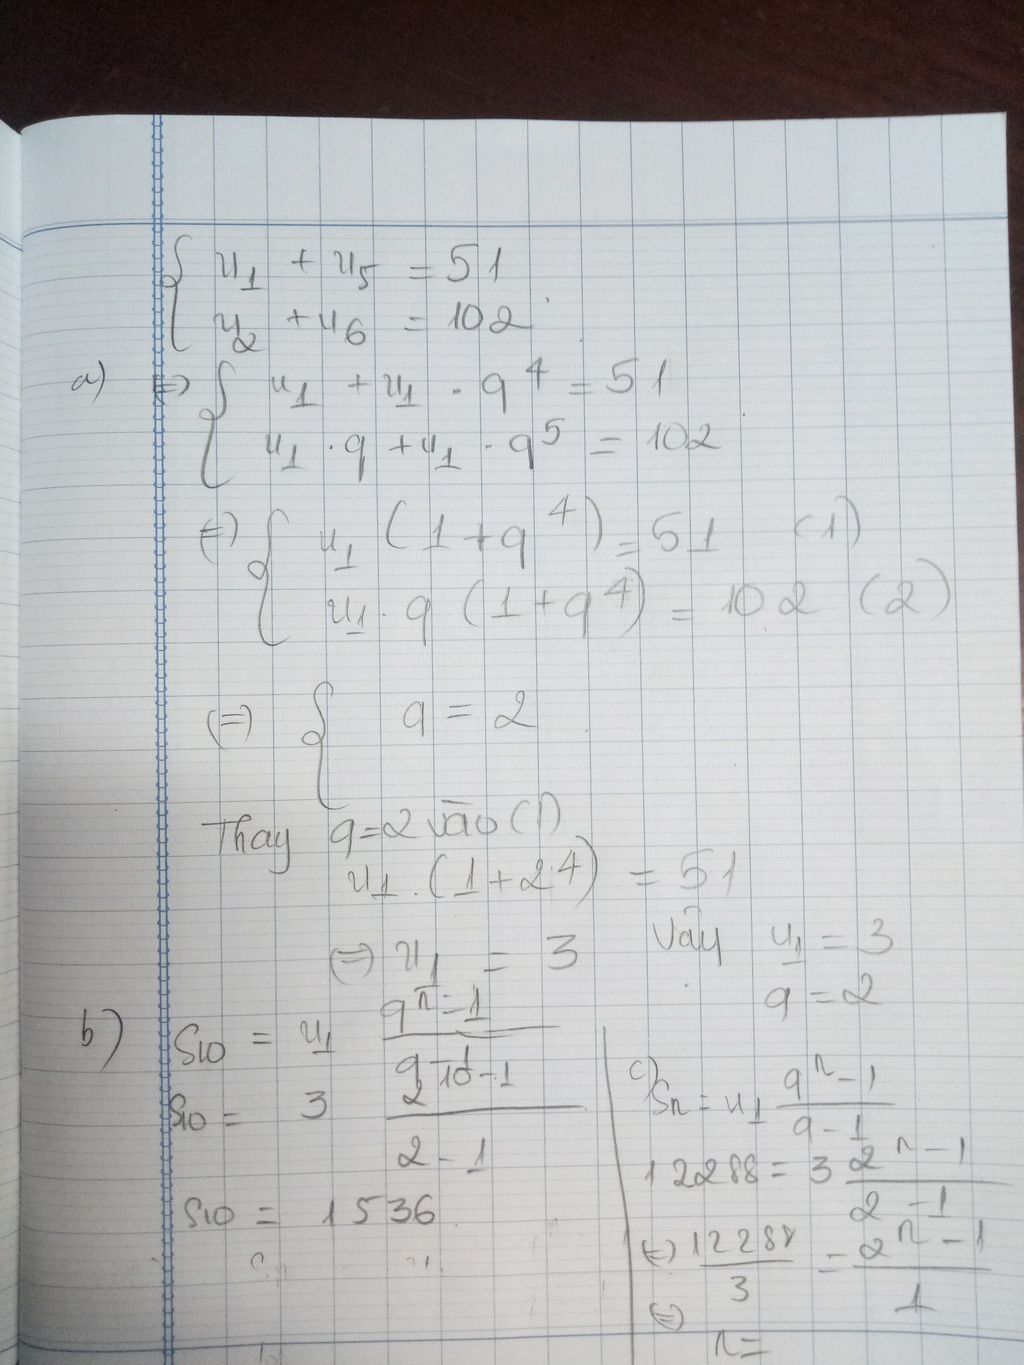 { u₁ + u₅ = 51
u₂ + u₆ = 102
a) ⇔ { u₁ + u₁ . q⁴ = 51
u₁ . q + u₁ . q⁵ = 102
⇔ { u₁ (1 + q⁴) = 51 (1)
u₁ . q (1 + q⁴) = 102 (2)
⇔ { q = 2
Thay q = 2 vào (1)
u₁ . (1 + 2⁴) = 51
⇔ u₁ = 3
Vậy u₁ = 3
q = 2
b) S₁₀ = u₁ (qⁿ - 1)/(q - 1)
S₁₀ = 3 (2¹⁰ - 1)/(2 - 1)
S₁₀ = 1536
c) Sₙ = u₁ (qⁿ - 1)/(q - 1)
12288 = 3 (2ⁿ - 1)/(2 - 1)
⇔ 12288/3 = (2ⁿ - 1)/1
⇔
n =